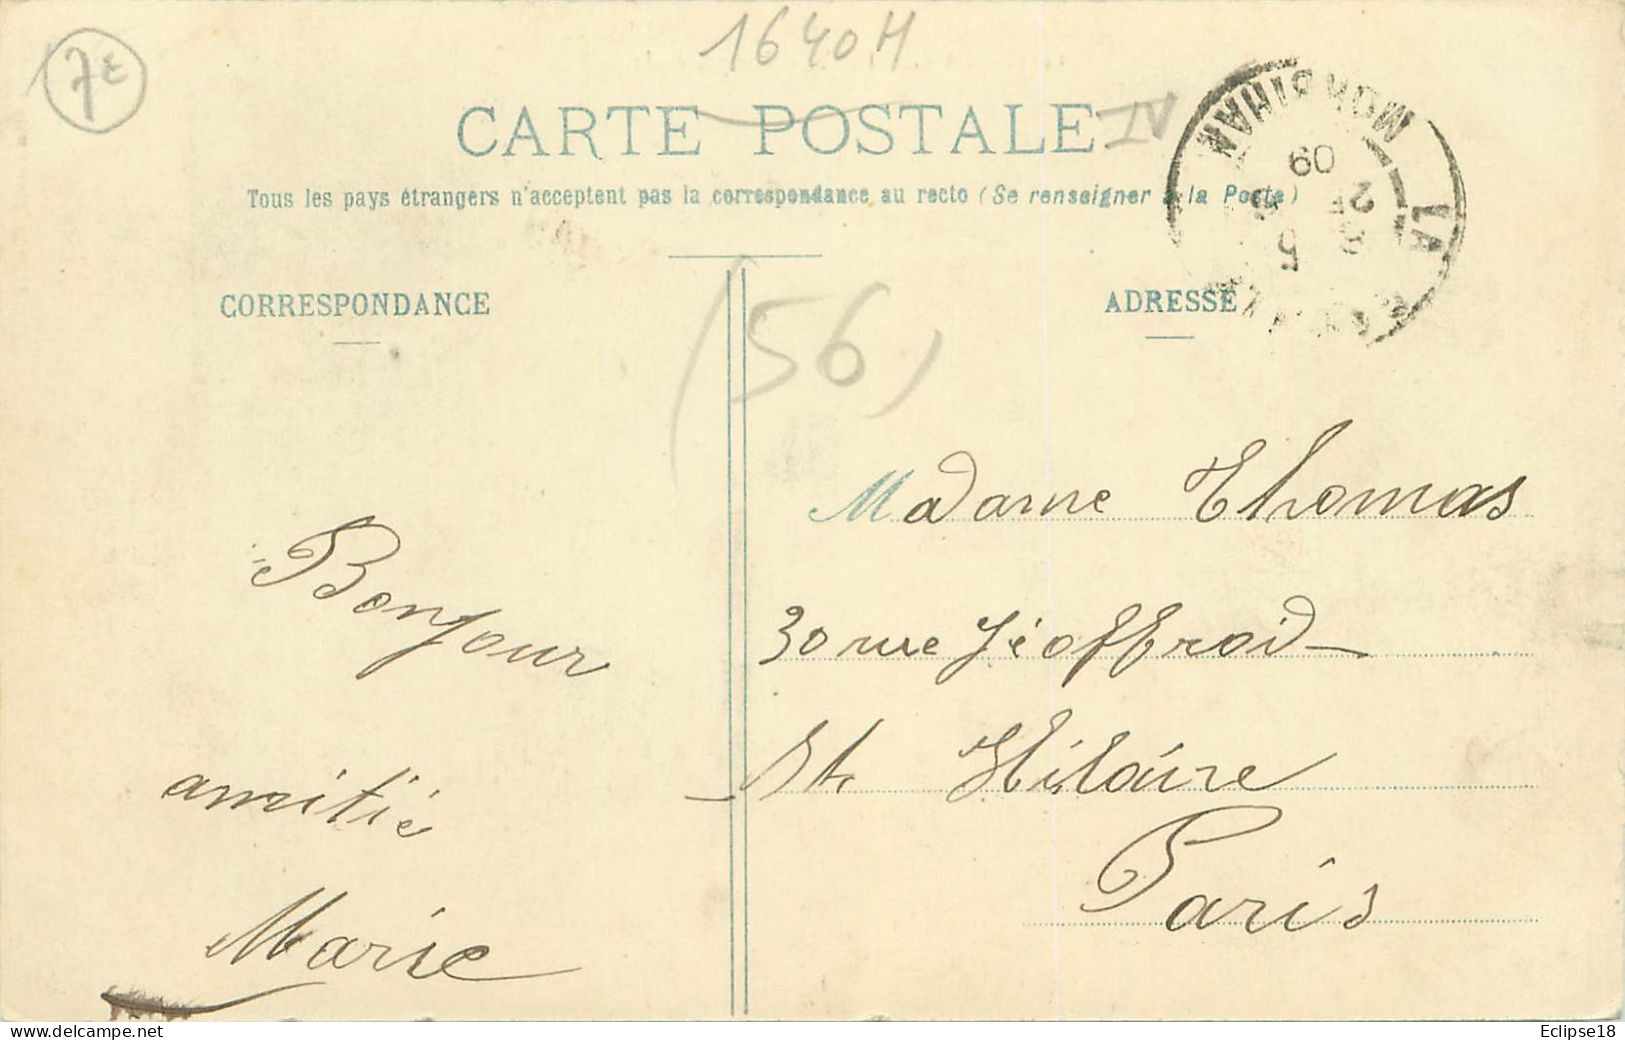 7€
1640H
CARTE POSTALE IV
Tous les pays étrangers n'acceptent pas la correspondance au recto (Se renseigner à la Poste)
MORBIHAN
LA
09
CORRESPONDANCE
(56)
ADRESSE
Madame Thomas
30 rue Jéoffroid
Bonjour
amitié
Marie
St Hilaire
Paris
Eclipse18
delcampe.net